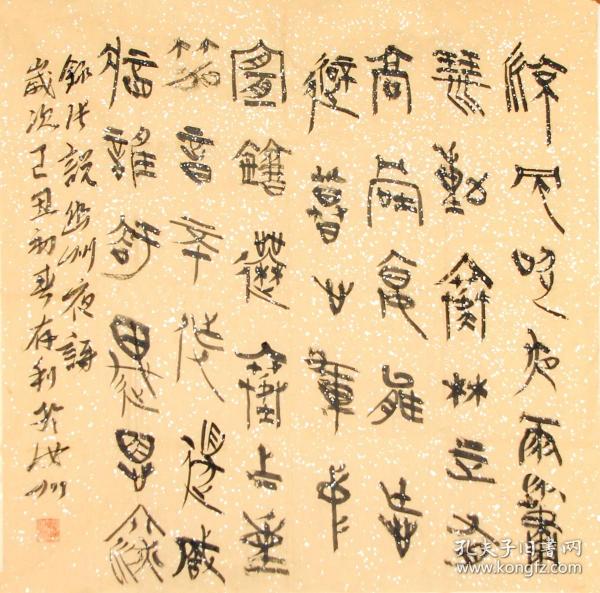 涼風吹夜雨蕭
瑟動寒林正有
高堂宴能忘
遲暮心軍中
宜劍舞塞上重
笳音不作邊城
將誰知遇恩深
錄張說幽州夜語
歲次己丑初春存利於汝州
孔夫子旧书网
www.kongfz.com